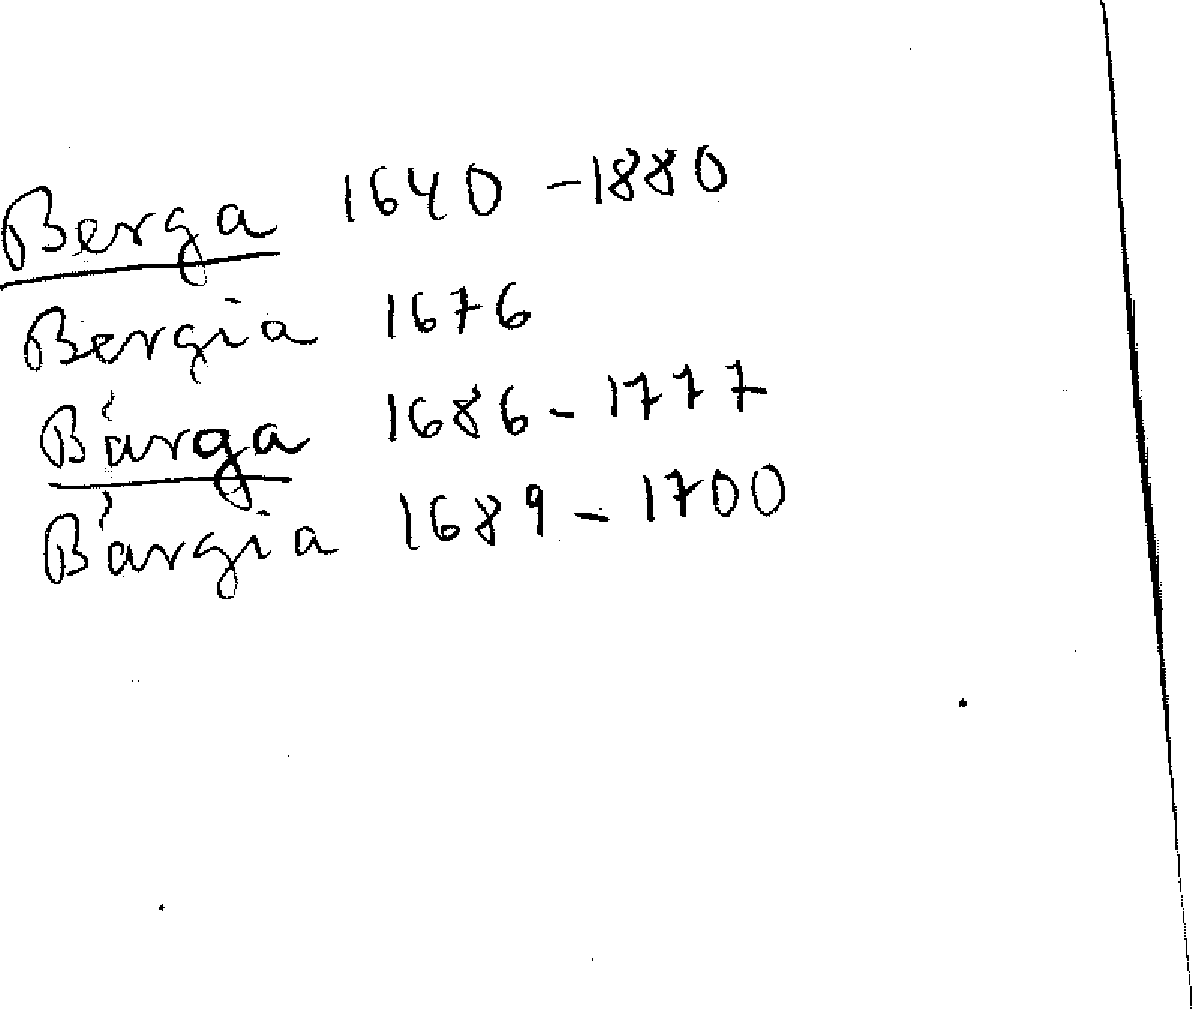 Berga 1640 - 1880
Bergia 1676
Bärga 1686 - 1777
Bärgia 1689 - 1700